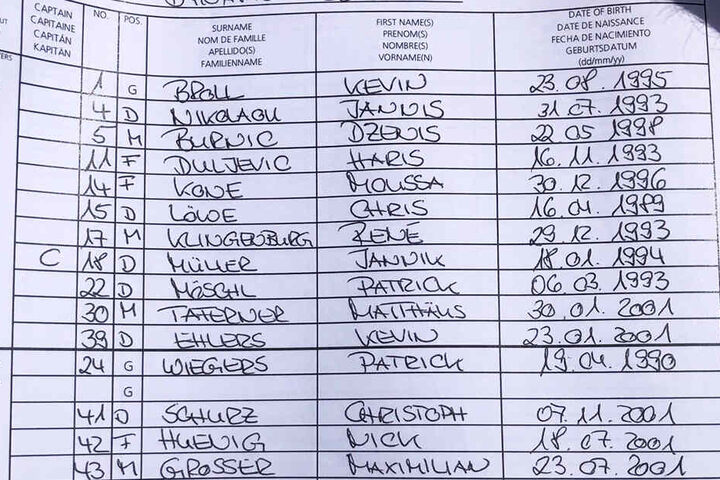 CAPTAIN NO. POS. SURNAME FIRST NAME(S) DATE OF BIRTH
CAPITAINE NOM DE FAMILLE PRENOM(S) DATE DE NAISSANCE
CAPITÁN APELLIDO(S) NOMBRE(S) FECHA DE NACIMIENTO
KAPITÄN FAMILIENNAME VORNAME(N) GEBURTSDATUM
(dd/mm/yy)
1 G BROLL KEVIN 23.08.1995
4 D NIKOLAOU JANNIS 31.07.1993
5 M BURNIC DZENIS 22.05.1998
11 F DULJEVIC HARIS 16.11.1993
14 F KONE MOUSSA 30.12.1996
15 D LÖWE CHRIS 16.04.1989
17 M KLINGENBURG RENE 29.12.1993
C 18 D MÜLLER JANNIK 18.01.1994
22 D MÖSCHL PATRICK 06.03.1993
30 M TAFERNER MATTHÄUS 30.01.2001
39 D EHLERS KEVIN 23.01.2001
24 G WIEGERS PATRICK 19.04.1990
G
41 D SCHURZ CHRISTOPH 07.11.2001
42 F HUENIG NICK 18.07.2001
43 M GROSSER MAXIMILIAN 23.07.2001